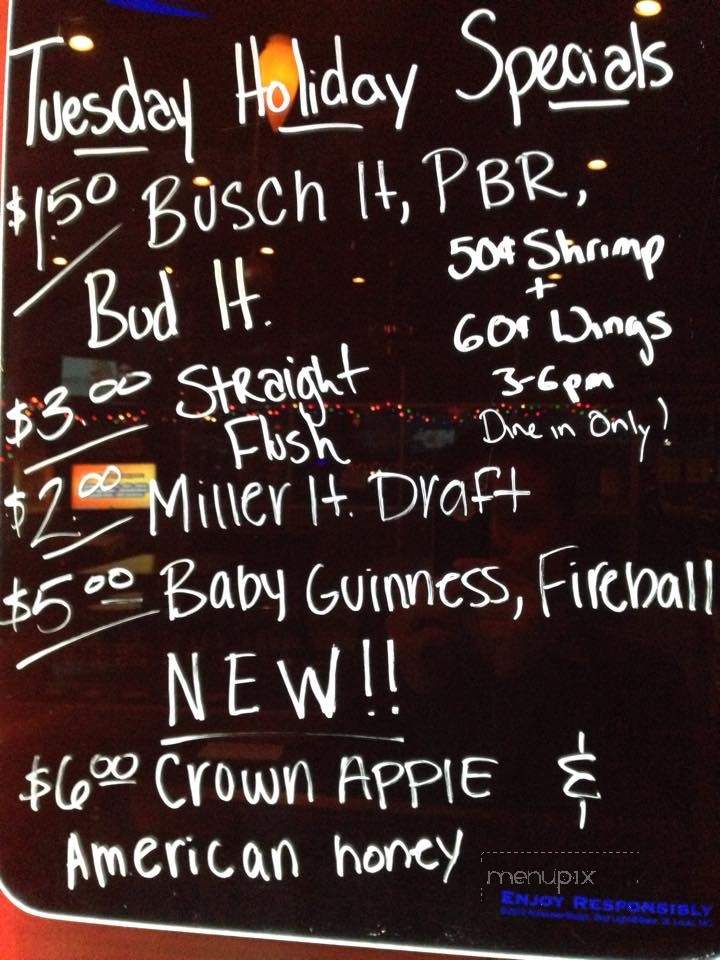 Tuesday Holiday Specials
$1.50 Busch lt, PBR,
Bud lt.
50¢ Shrimp
+
60¢ Wings
3-6pm
Dine in Only!
$3.00 Straight
Flush
$2.00 Miller lt. Draft
$5.00 Baby Guinness, Fireball
NEW!!
$6.00 Crown APPlE &
American honey
menupix
ENJOY RESPONSIBLY